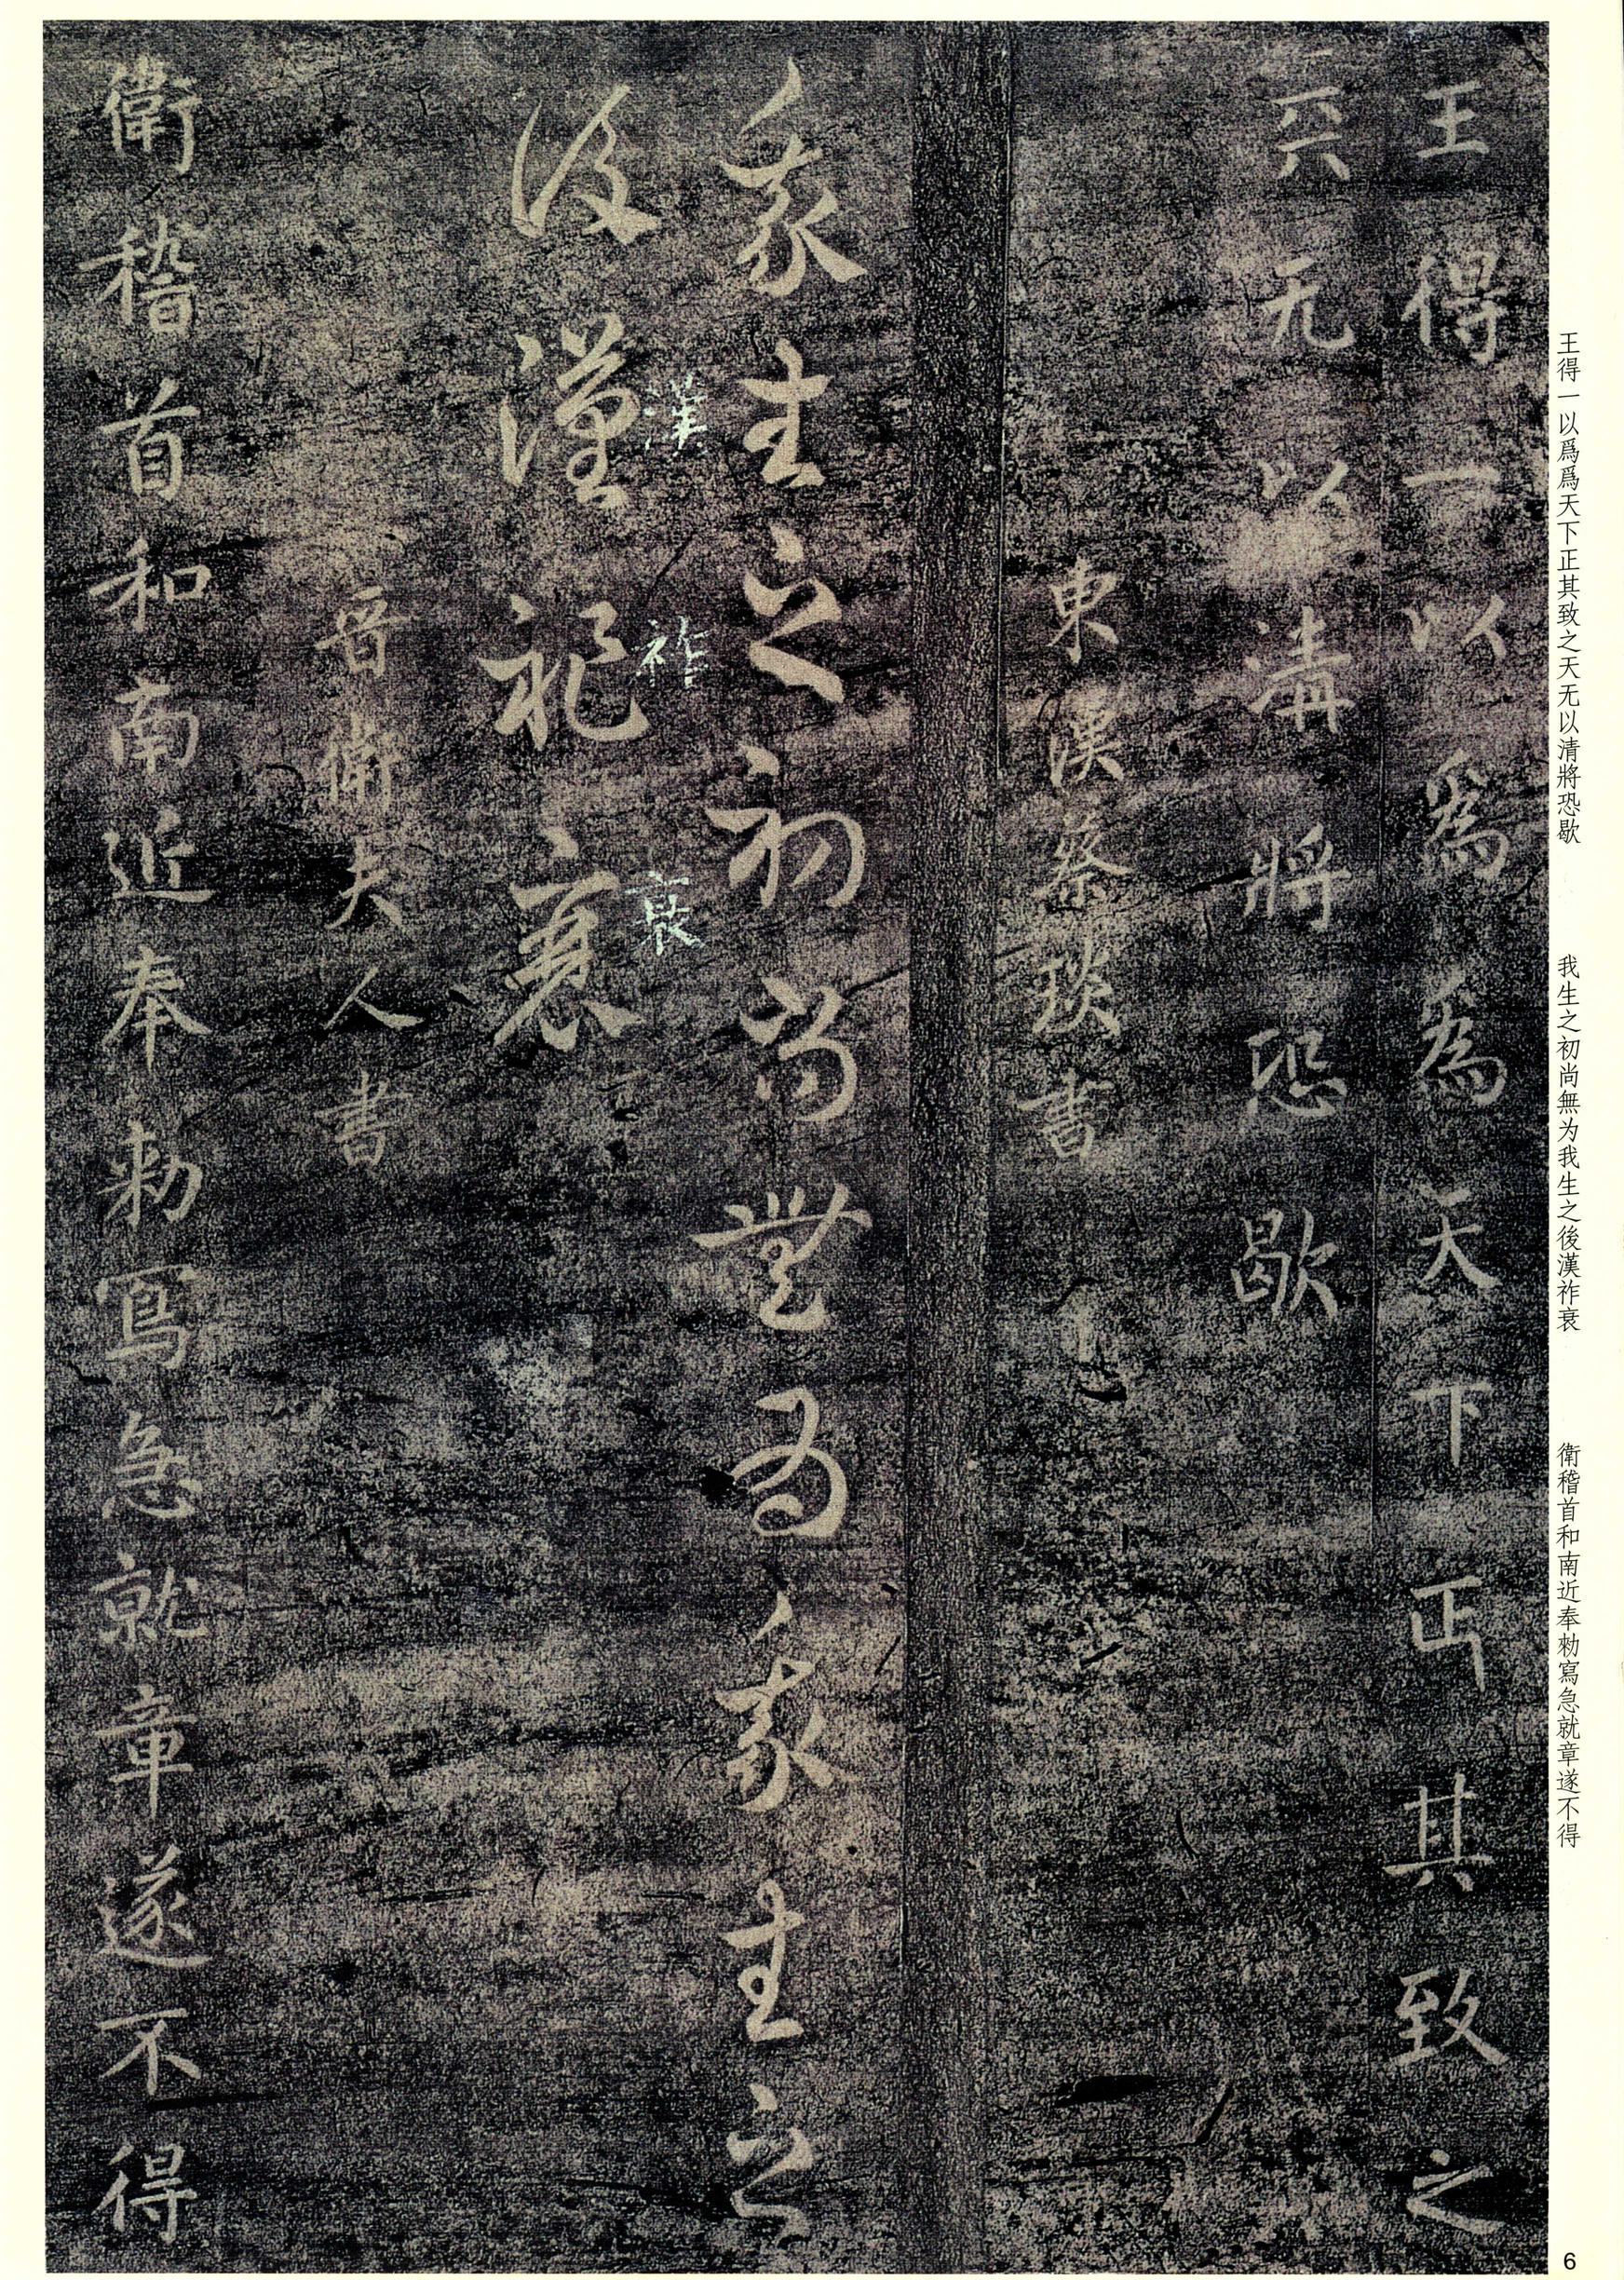 王得一以爲爲天下正其致之
天无以清將恐歇
東漢蔡琰書
我生之初尚無为我生之
後漢祚衰
漢
祚
衰
晉衛夫人書
衛稽首和南近奉勑寫急就章遂不得
王得一以爲爲天下正其致之天无以清將恐歇
我生之初尚無为我生之後漢祚衰
衛稽首和南近奉勑寫急就章遂不得
6